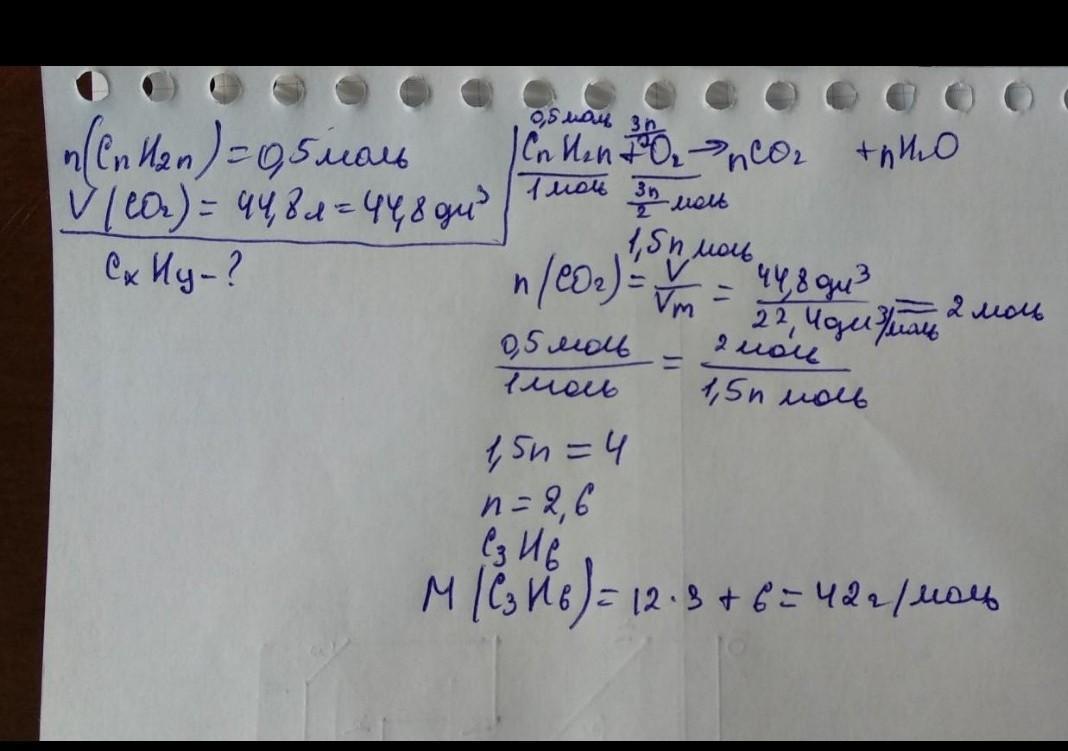 n(CnH2n) = 0,5 моль
V(CO2) = 44,8 л = 44,8 дм³
CxHy - ?
0,5 моль 3n/2
CnH2n + O2 → nCO2 + nH2O
1 моль 3n/2 моль
1,5n моль
n(CO2) = V/Vm = 44,8 дм³/22,4 дм³/моль = 2 моль
0,5 моль/1 моль = 2 моль/1,5n моль
1,5n = 4
n = 2,6
C3H6
M(C3H6) = 12·3 + 6 = 42 г/моль